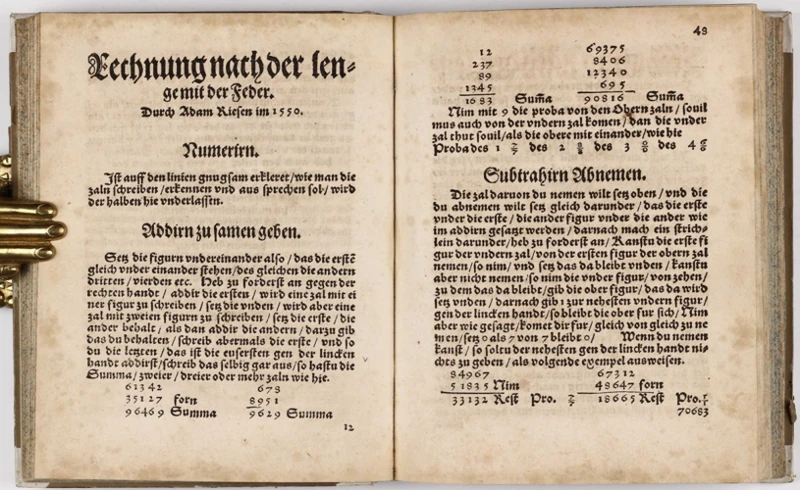 Rechnung nach der len⸗
ge mit der Feder.
Durch Adam Riesen im 1550.
Numerirn.
Ist auff den linien gnugsam erkleret/wie man die
zaln schreiben/erkennen vnd aus sprechen sol/wird
der halben hie vnderlassen.
Addirn zu samen geben.
Setz die figurn vndereinander also/das die erstē
gleich vnder einander stehen/des gleichen die andern
dritten/vierden etc. Heb zu forderst an gegen der
rechten handt/addir die ersten/wird eine zal mit ei
ner figur zu schreiben/setz die vnden/wird aber eine
zal mit zweien figurn zu schreiben/setz die erste/die
ander behalt/als dan addir die andern/darzu gib
das du behalten/schreib abermals die erste/vnd so
du die letzten/das ist die eusersten gen der lincken
handt addirst/schreib das selbig gar aus/so hastu die
Summa/zweier/dreier oder mehr zaln wie hie.
61342 678
35127 forn 8951
96469 Summa 9629 Summa
12
48
12 69375
237 8406
89 12340
1345 695
1683 Sum̄a 90816 Sum̄a
Nim mit 9 die proba von den Obern zaln/souil
mus auch von der vndern zal komen/dan die vnder
zal thut souil/als die obere mit einander/wie hie
Proba des 1 des 2 des 3 des 4
Subtrahirn Abnemen.
Die zal daruon du nemen wilt setz oben/vnd die
du abnemen wilt setz gleich darunder/das die erste
vnder die erste/die ander figur vnder die ander wie
im addirn gesatzt werden/darnach mach ein strich⸗
lein darunder/heb zu forderst an/Kanstu die erste fi
gur der vndern zal/von der ersten figur der obern zal
nemen/so nim/vnd setz das da bleibt vnden/kanstu
aber nicht nemen/so nim die vnder figur/von zehen/
zu dem das da bleibt/gib die ober figur/das da wird
setz vnden/darnach gib 1 zur nehesten vndern figur/
gen der lincken handt/so bleibt die ober fur sich/Nim
aber wie gesagt/komet dir fur/gleich von gleich zu ne
men/setz 0 als 7 von 7 bleibt 0/ Wenn du nemen
kanst/so soltu der nehesten gen der lincken handt ni⸗
chts zu geben/als volgende exempel ausweisen.
84967 67312
51835 Nim 48647 forn
33132 Rest Pro. 18665 Rest Pro.
70683